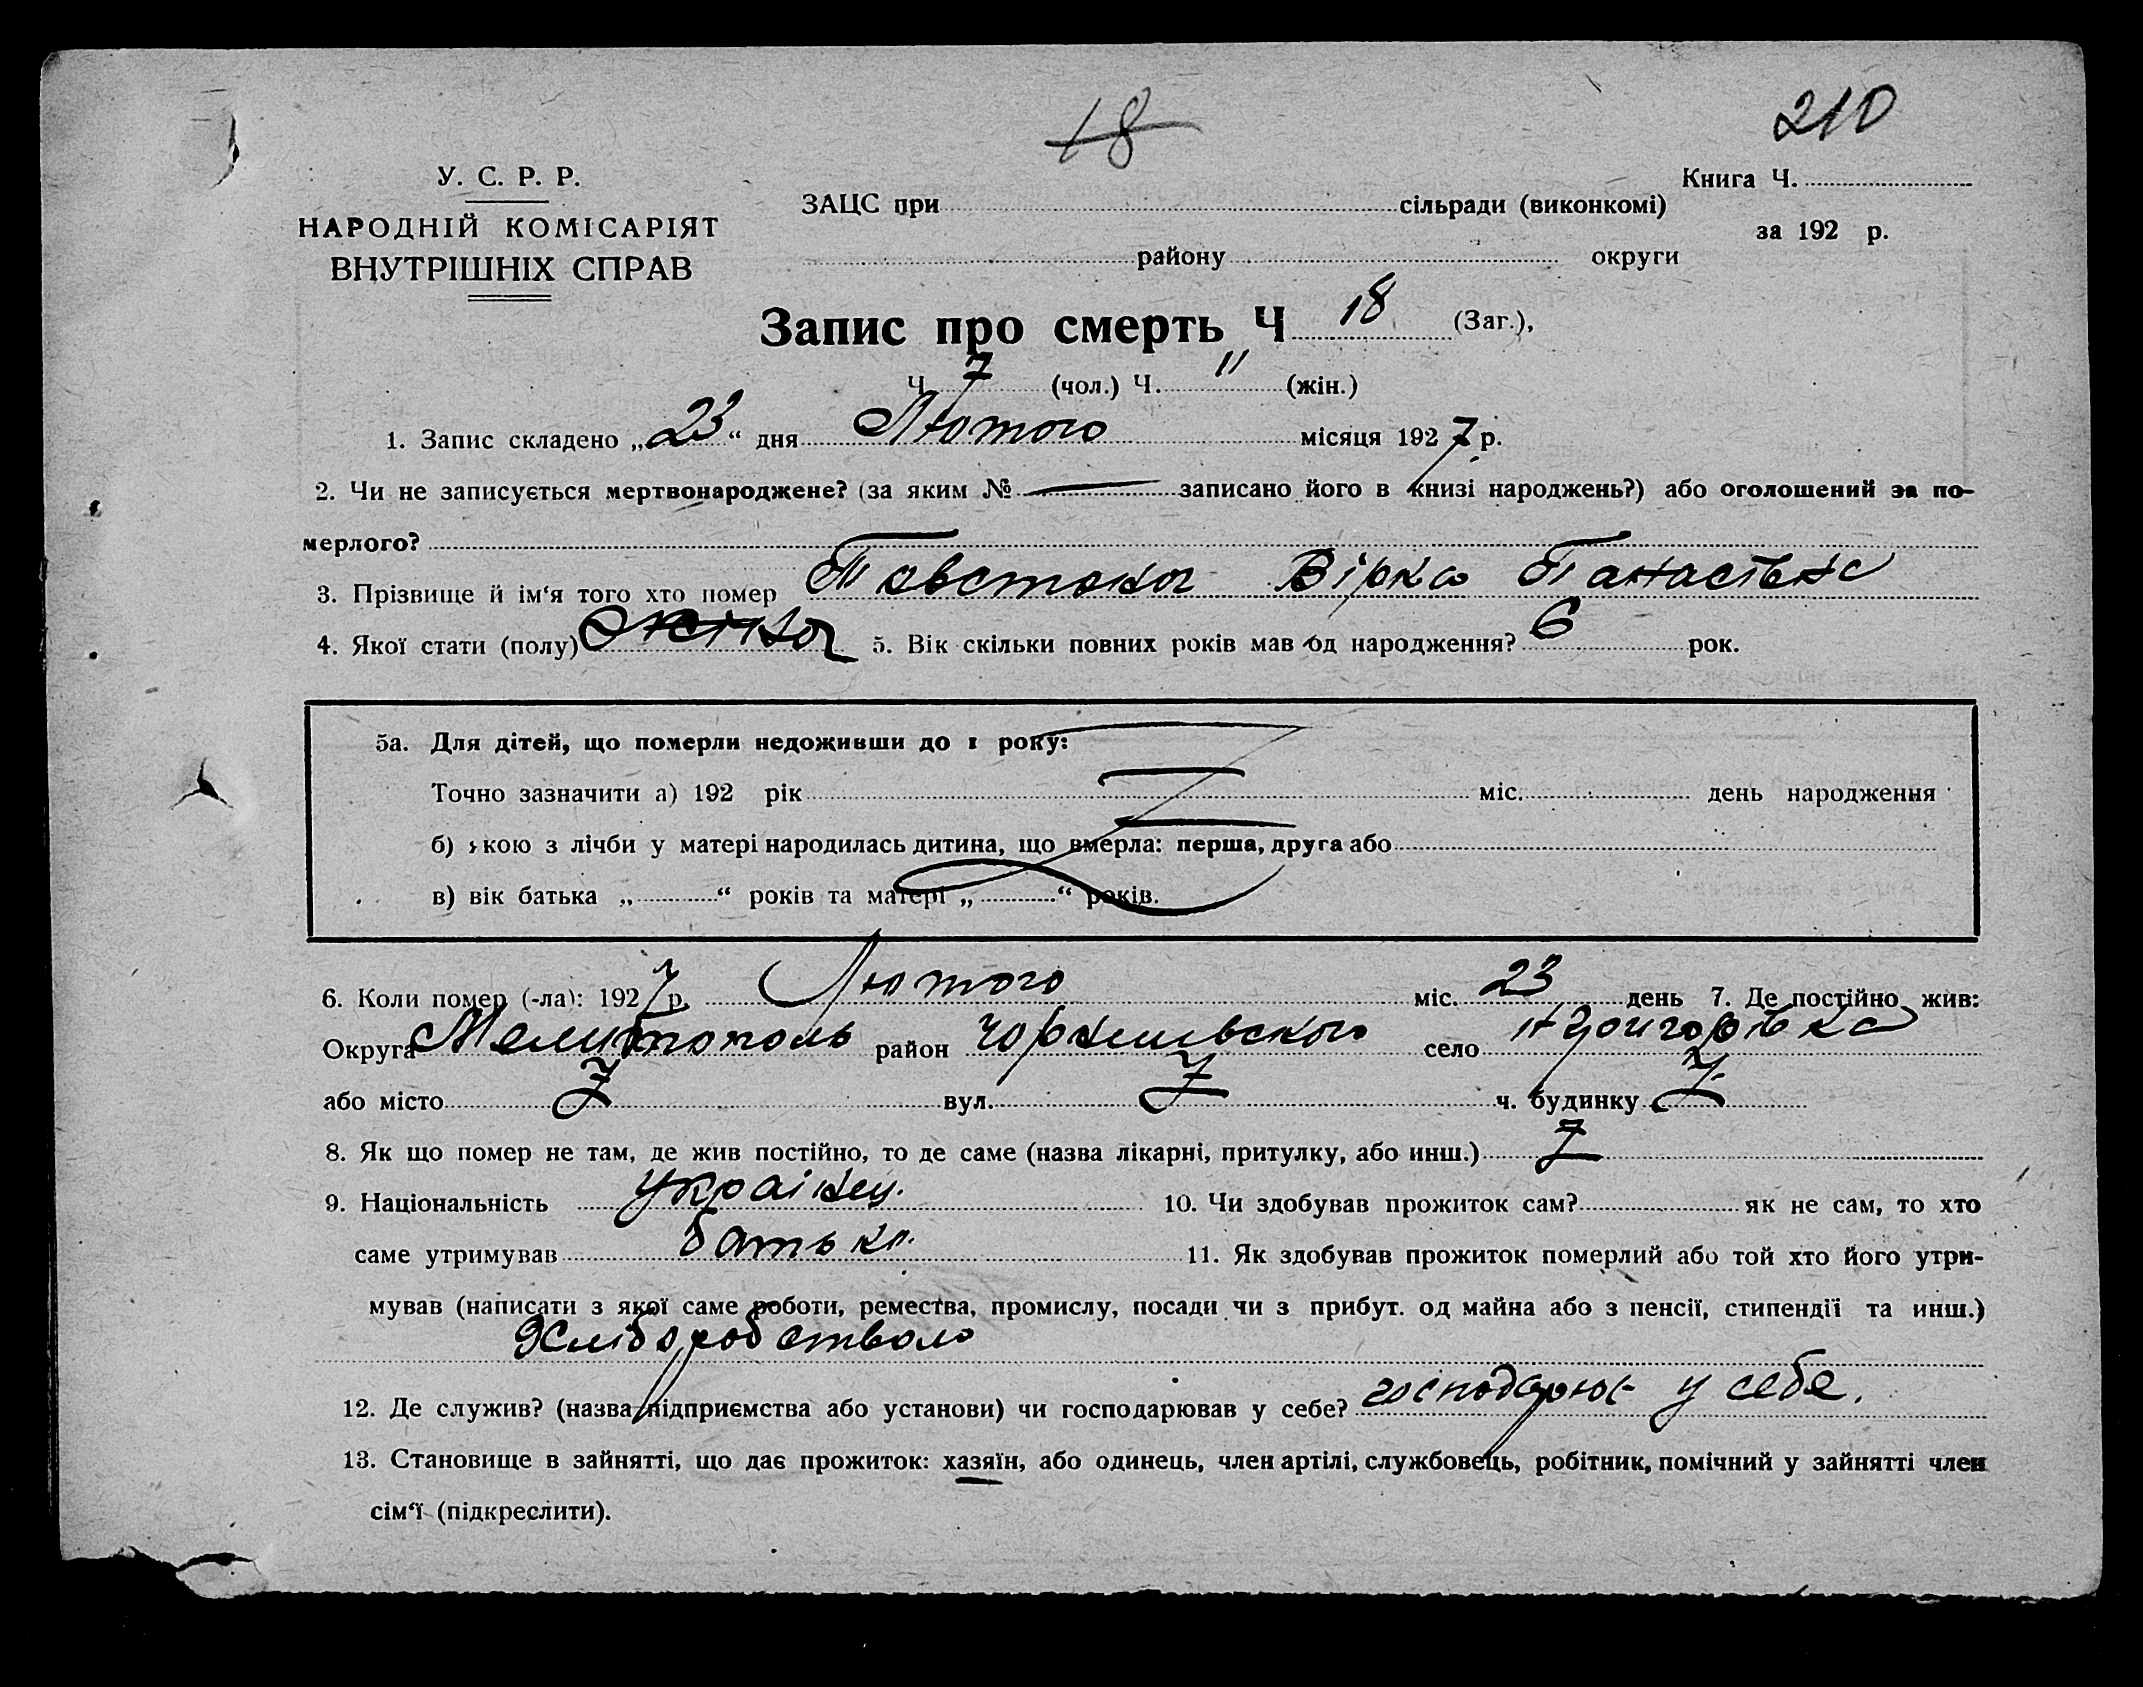 18
210
У. С. Р. Р.
НАРОДНІЙ КОМІСАРІЯТ
ВНУТРІШНІХ СПРАВ
Книга Ч.
ЗАЦС при сільради (виконкомі)
за 192 р.
району округи
Запис про смерть Ч 18 (Заг.),
Ч 7 (чол.) Ч. 11 (жін.)
1. Запис складено „23“ дня Лютого місяця 1927 р.
2. Чи не записується мертвонароджене? (за яким № — записано його в книзі народжень?) або оголошений за по-
мерлого?
3. Прізвище й ім‘я того хто помер Товстока Вірка Панасівна
4. Якої стати (полу) жіноч 5. Вік скільки повних років мав од народження? 6 рок.
5а. Для дітей, що померли недоживши до 1 року:
Точно зазначити а) 192 рік міс. день народження
б) якою з лічби у матері народилась дитина, що вмерла: перша, друга або
в) вік батька „ “ років та матері „ “ років.
6. Коли помер (-ла): 1927 р. Лютого міс. 23 день 7. Де постійно жив:
Округа Мелитополь район село
або місто вул. ч. будинку
8. Як що помер не там, де жив постійно, то де саме (назва лікарні, притулку, або инш.)
9. Національність українец. 10. Чи здобував прожиток сам? як не сам, то хто
саме утримував батько. 11. Як здобував прожиток померлий або той хто його утри-
мував (написати з якої саме роботи, ремества, промислу, посади чи з прибут. од майна або з пенсії, стипендії та инш.)
Хліборобством
12. Де служив? (назва підприємства або установи) чи господарював у себе? господарює у себе.
13. Становище в зайнятті, що дає прожиток: хазяїн, або одинець, член артілі, службовець, робітник, помічний у зайнятті член
сім‘ї (підкреслити).